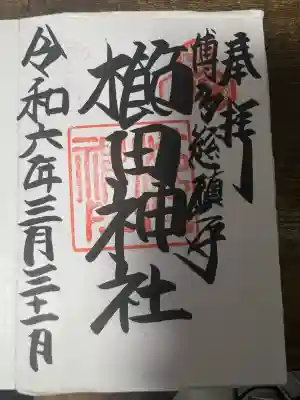 奉拝
博多総鎮守
櫛田神社
令和六年三月三十一日